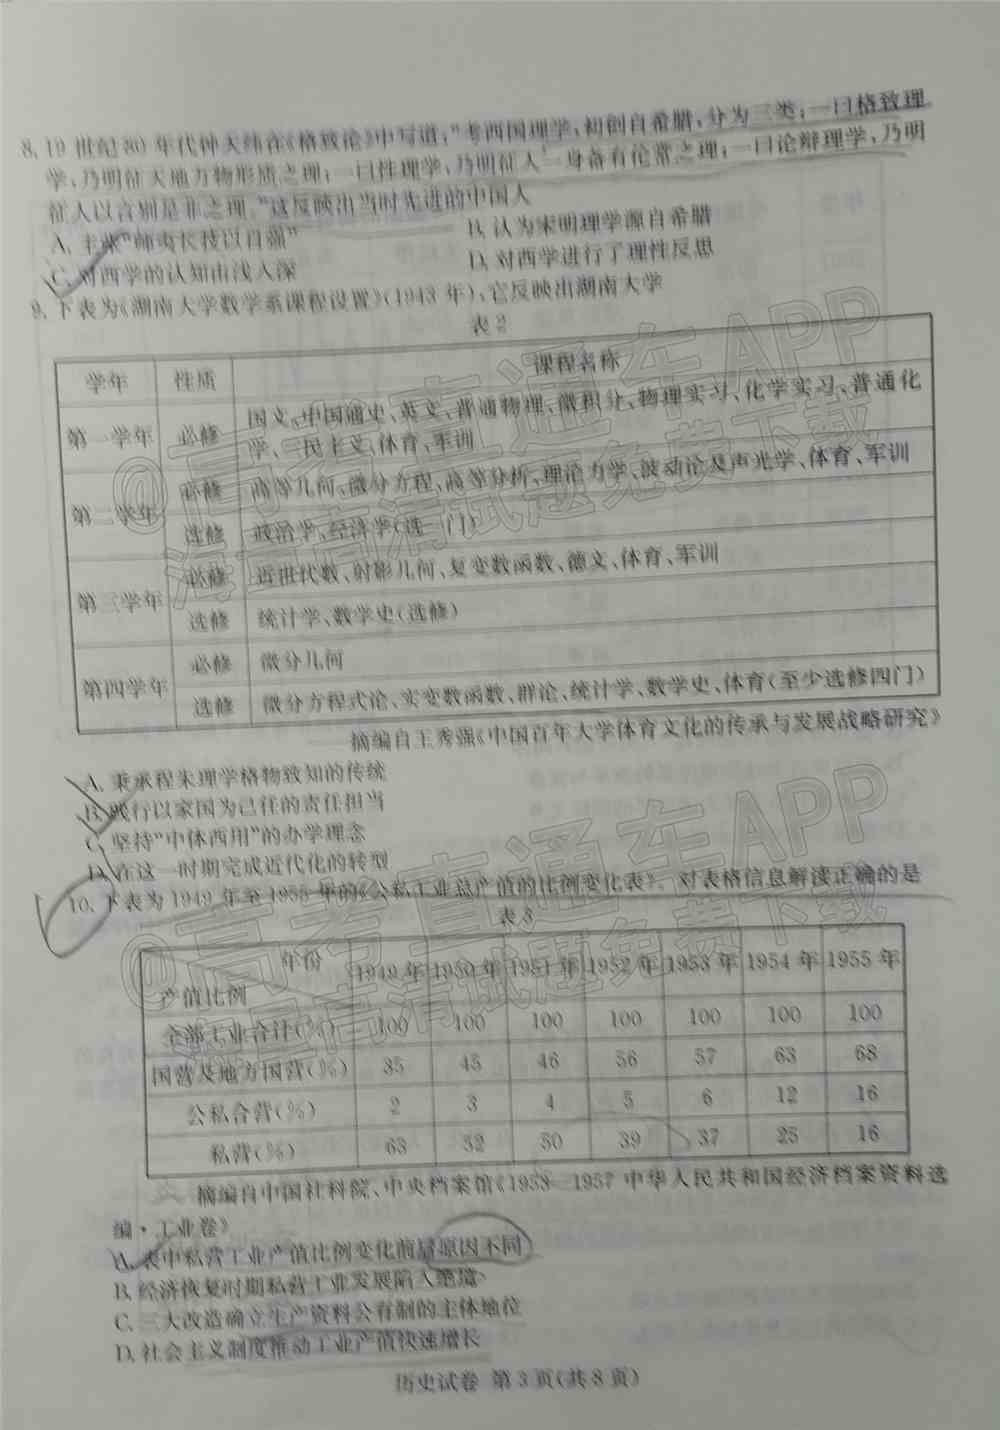 8. 19 世纪 80 年代钟天纬在《格致论》中写道：“考西国理学，初创自希腊，分为三类：一曰格致理
学，乃明征天地万物形质之理；一曰性理学，乃明征人一身备有伦常之理；一曰论辩理学，乃明
征人以言别是非之理。”这反映出当时先进的中国人
A. 主张“师夷长技以自强” B. 认为宋明理学源自希腊
C. 对西学的认知由浅入深 D. 对西学进行了理性反思
9. 下表为《湖南大学数学系课程设置》(1943 年)，它反映出湖南大学
表 2
学年 性质 课程名称
第一学年 必修 国文、中国通史、英文、普通物理、微积分、物理实习、化学实习、普通化
学、三民主义、体育、军训
第二学年 必修 高等几何、微分方程、高等分析、理论力学、波动论及声光学、体育、军训
选修 政治学、经济学(选一门)
第三学年 必修 近世代数、射影几何、复变数函数、德文、体育、军训
选修 统计学、数学史(选修)
第四学年 必修 微分几何
选修 微分方程式论、实变数函数、群论、统计学、数学史、体育(至少选修四门)
摘编自王秀强《中国百年大学体育文化的传承与发展战略研究》
A. 秉承程朱理学格物致知的传统
B. 践行以家国为己任的责任担当
C. 坚持“中体西用”的办学理念
D. 在这一时期完成近代化的转型
10. 下表为 1949 年至 1955 年的《公私工业总产值的比例变化表》。对表格信息解读正确的是
表 3
年份 产值比例 1949 年 1950 年 1951 年 1952 年 1953 年 1954 年 1955 年
全部工业合计(%) 100 100 100 100 100 100 100
国营及地方国营(%) 35 45 46 56 57 63 68
公私合营(%) 2 3 4 5 6 12 16
私营(%) 63 52 50 39 37 25 16
摘编自中国社科院、中央档案馆《1953—1957 中华人民共和国经济档案资料选
编·工业卷》
A. 表中私营工业产值比例变化前后原因不同
B. 经济恢复时期私营工业发展陷入绝境
C. 三大改造确立生产资料公有制的主体地位
D. 社会主义制度推动工业产值快速增长
历史试卷 第 3 页(共 8 页)
@高考直通车APP
海量高清试题免费下载
@高考直通车APP
海量高清试题免费下载